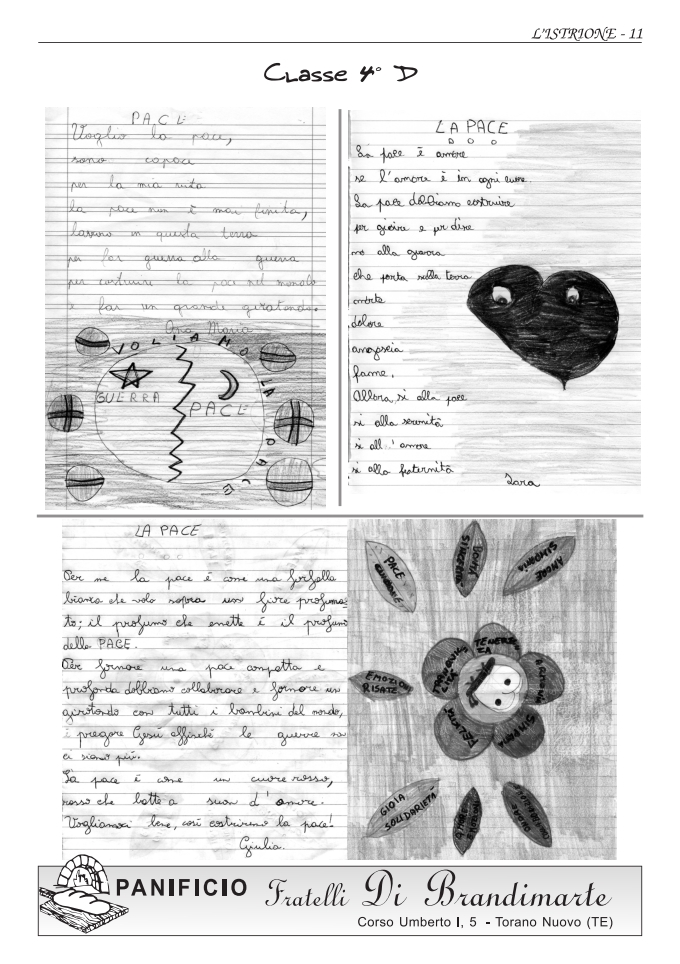 L'ISTRIONE - 11
Classe 4° D
PACE
Voglio la pace,
sono capace
per la mia
la pace non è mai finita,
lavoro in questa terra
per far guerra alla guerra
per costruire la pace nel mondo
e far un grande girotondo.
Ana Maria
VOLIAMO LA PACE
GUERRA
PACE
LA PACE
La pace è amore
se l'amore è in ogni cuore
La pace dobbiamo costruire
per gioire e per dire
no alla guerra
che porta nella terra
morte
dolore
angoscia
fame.
Allora, sì alla pace
sì alla serenità
sì all'amore
sì alla fraternità
Sara
LA PACE
Per me la pace è come una farfalla
bianca che vola sopra un fiore profuma-
to; il profumo che emette è il profumo
della PACE.
Per formare una pace compatta e
profonda dobbiamo collaborare e formare un
girotondo con tutti i bambini del mondo,
e pregare Gesù affinché le guerre non
ci siano più.
La pace è come un cuore rosso,
rosso che batte a suon d'amore.
Vogliamoci bene, così costruiremo la pace!
Giulia.
PACE
BONTÀ
SINCERITÀ
AMORE
ARMONIA
TENEREZZA
TRANQUILLITÀ
EMOZIONI
RISATE
GIOIA
SOLIDARIETÀ
PANIFICIO Fratelli Di Brandimarte
Corso Umberto I, 5 - Torano Nuovo (TE)